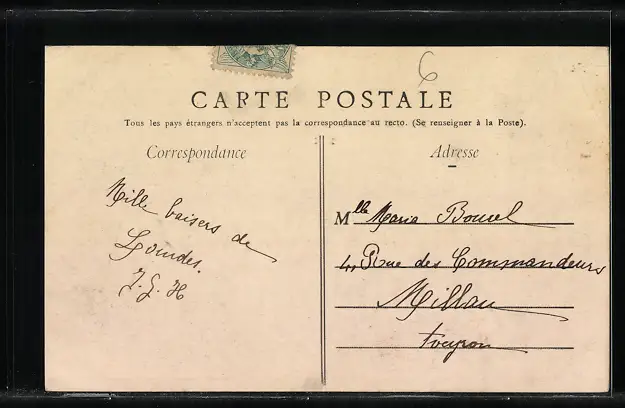 6
CARTE POSTALE
Tous les pays étrangers n'acceptent pas la correspondance au recto. (Se renseigner à la Poste).
Correspondance
Adresse
Mille baisers de
Lourdes.
Mlle Maria
4, Rue des Commandeurs
Millau
Aveyron